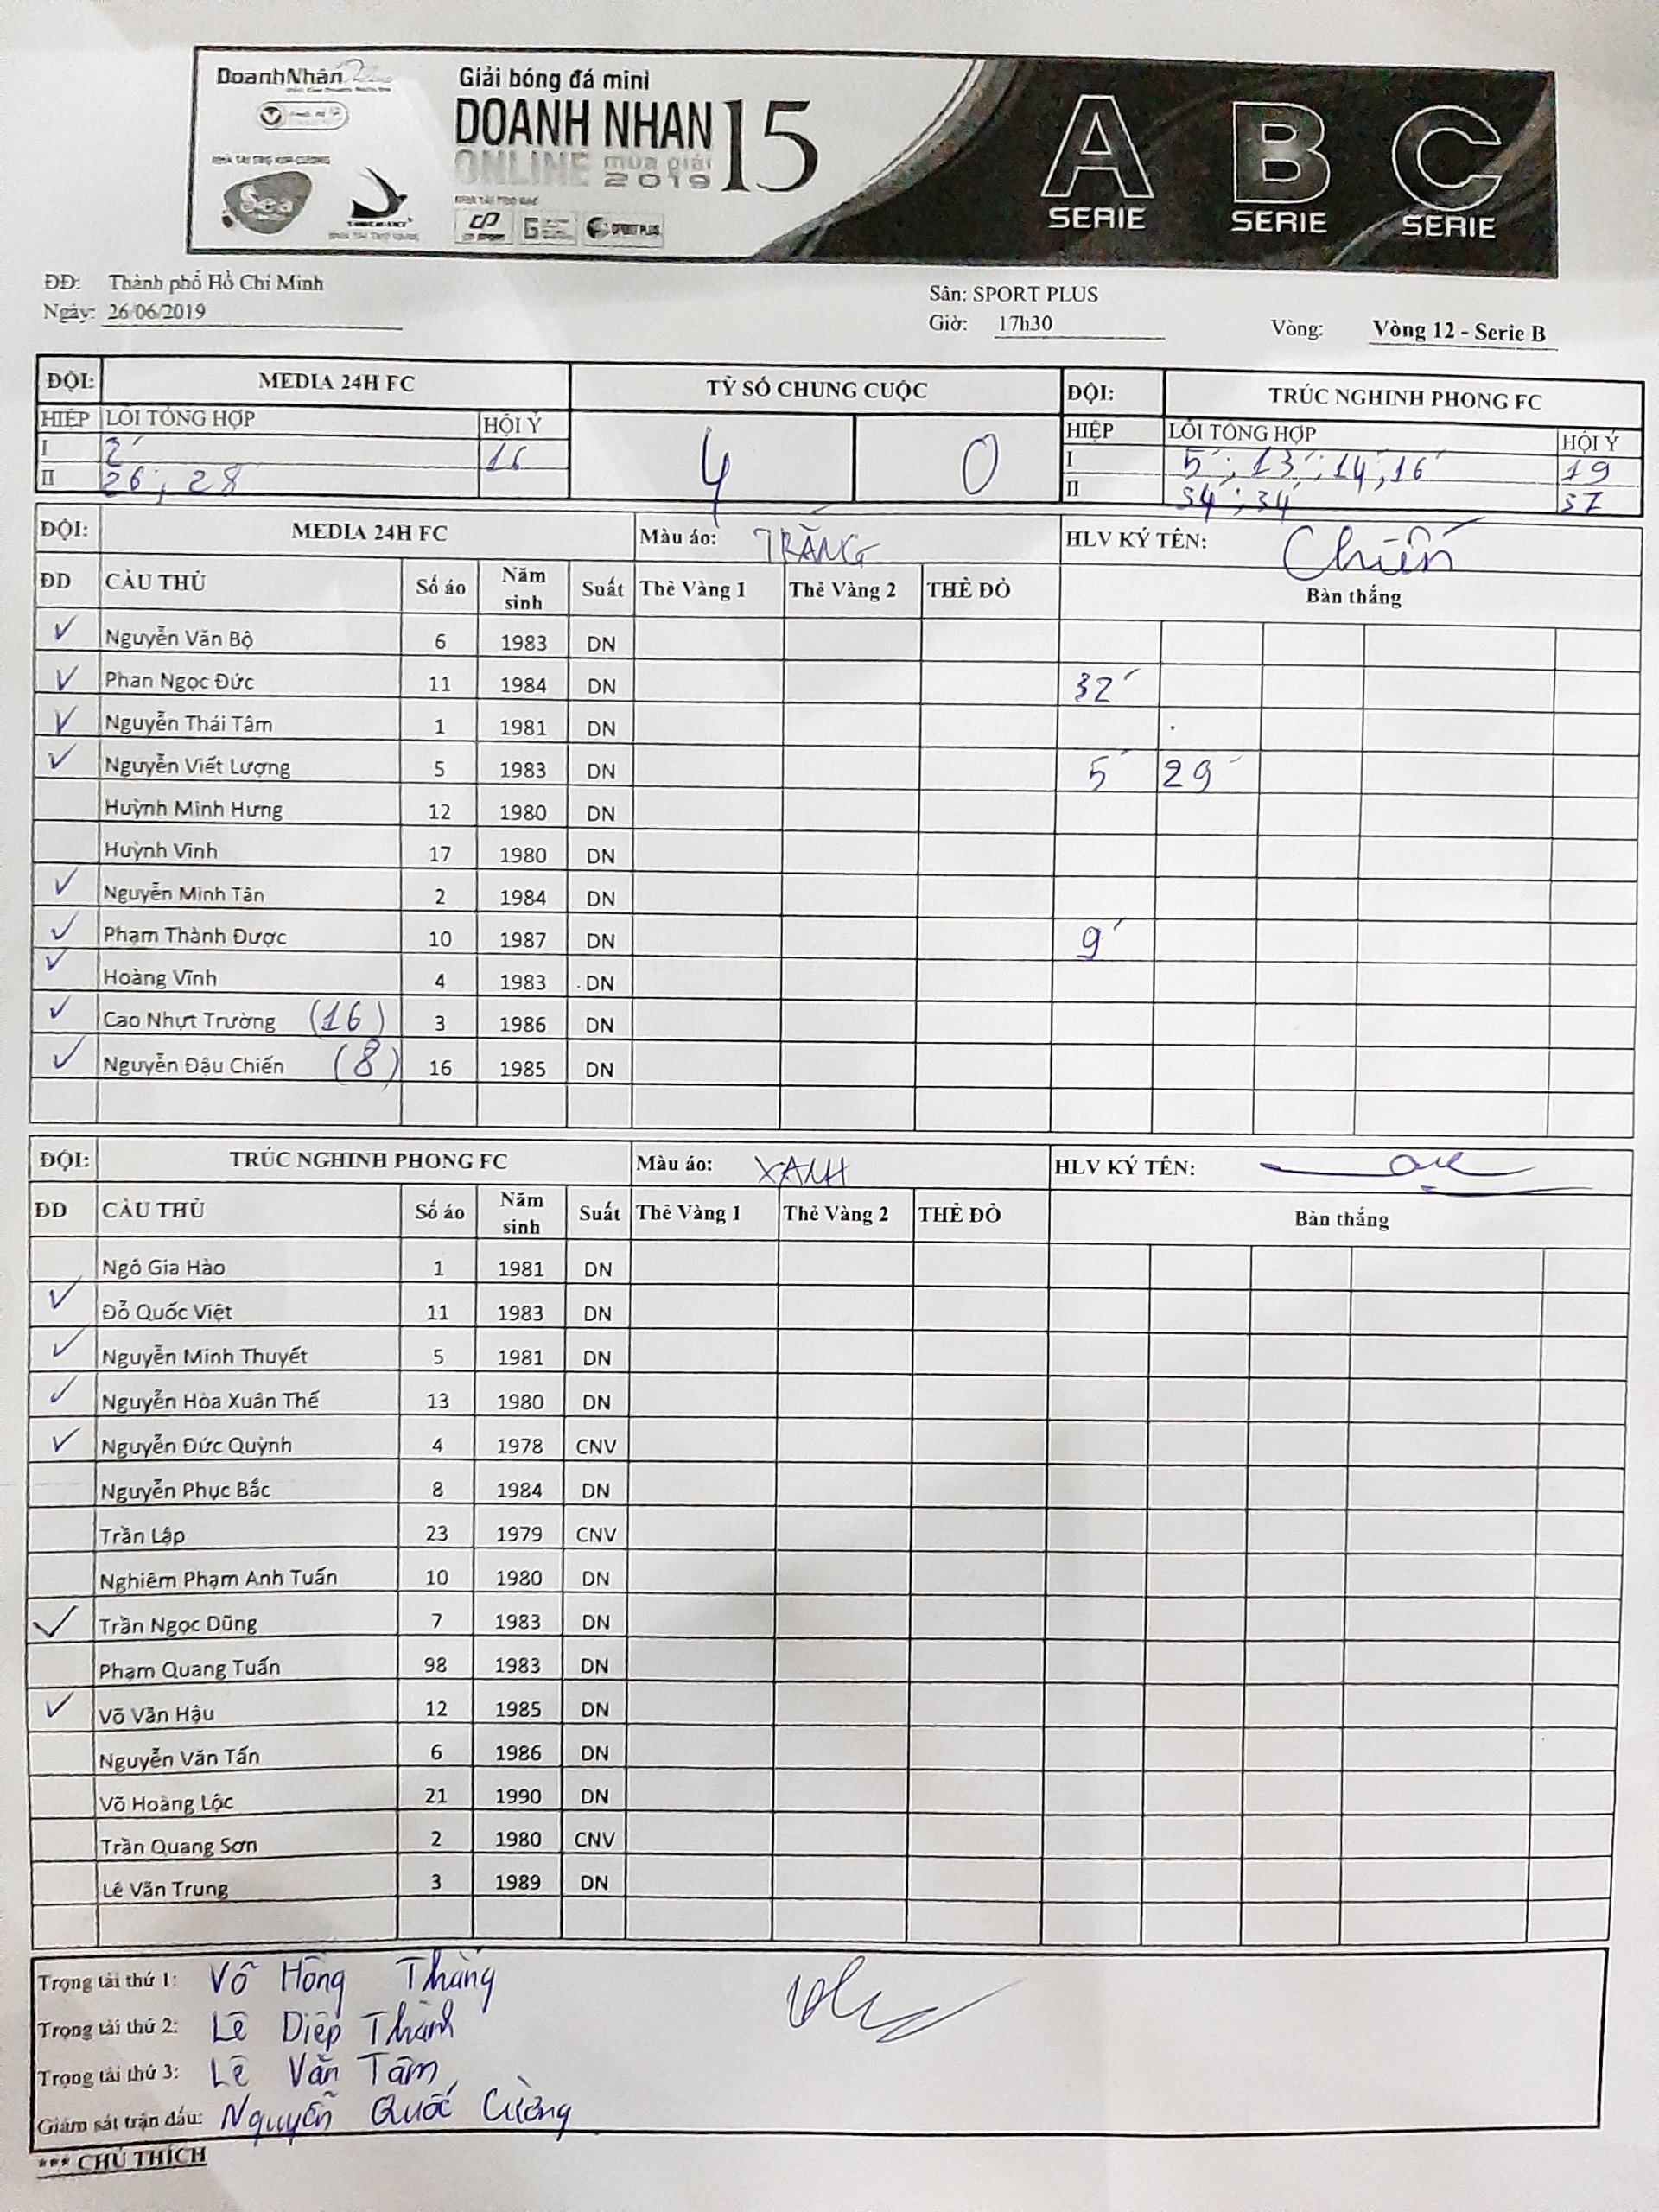 DoanhNhân
Giải bóng đá mini
DOANH NHAN 15
ONLINE mùa giải 2019
NHÀ TÀI TRỢ KIM CƯƠNG
Sea
SPORT PLUS
A B C
SERIE SERIE SERIE
ĐĐ: Thành phố Hồ Chí Minh Sân: SPORT PLUS
Ngày: 26/06/2019 Giờ: 17h30 Vòng: Vòng 12 - Serie B
ĐỘI: MEDIA 24H FC TỶ SỐ CHUNG CUỘC ĐỘI: TRÚC NGHINH PHONG FC
HIỆP LỖI TỔNG HỢP HỘI Ý 4 0 HIỆP LỖI TỔNG HỢP HỘI Ý
I 2' 16 I 5'; 13'; 14'; 16' 19
II 26; 28 II 34'; 34' 37
ĐỘI: MEDIA 24H FC Màu áo: TRẮNG HLV KÝ TÊN: Chiến
ĐD CẦU THỦ Số áo Năm sinh Suất Thẻ Vàng 1 Thẻ Vàng 2 THẺ ĐỎ Bàn thắng
✓ Nguyễn Văn Bộ 6 1983 DN
✓ Phan Ngọc Đức 11 1984 DN 32'
✓ Nguyễn Thái Tâm 1 1981 DN
✓ Nguyễn Viết Lượng 5 1983 DN 5' 29'
Huỳnh Minh Hưng 12 1980 DN
Huỳnh Vinh 17 1980 DN
✓ Nguyễn Minh Tân 2 1984 DN
✓ Phạm Thành Được 10 1987 DN 9'
✓ Hoàng Vĩnh 4 1983 DN
✓ Cao Nhựt Trường (16) 3 1986 DN
✓ Nguyễn Đậu Chiến (8) 16 1985 DN
ĐỘI: TRÚC NGHINH PHONG FC Màu áo: XANH HLV KÝ TÊN:
ĐD CẦU THỦ Số áo Năm sinh Suất Thẻ Vàng 1 Thẻ Vàng 2 THẺ ĐỎ Bàn thắng
Ngô Gia Hào 1 1981 DN
✓ Đỗ Quốc Việt 11 1983 DN
✓ Nguyễn Minh Thuyết 5 1981 DN
✓ Nguyễn Hòa Xuân Thế 13 1980 DN
✓ Nguyễn Đức Quỳnh 4 1978 CNV
Nguyễn Phục Bắc 8 1984 DN
Trần Lập 23 1979 CNV
Nghiêm Phạm Anh Tuấn 10 1980 DN
✓ Trần Ngọc Dũng 7 1983 DN
Phạm Quang Tuấn 98 1983 DN
✓ Võ Văn Hậu 12 1985 DN
Nguyễn Văn Tấn 6 1986 DN
Võ Hoàng Lộc 21 1990 DN
Trần Quang Sơn 2 1980 CNV
Lê Văn Trung 3 1989 DN
Trọng tài thứ 1: Võ Hồng Thắng
Trọng tài thứ 2: Lê Diệp Thành
Trọng tài thứ 3: Lê Văn Tâm
Giám sát trận đấu: Nguyễn Quốc Cường
*** CHÚ THÍCH